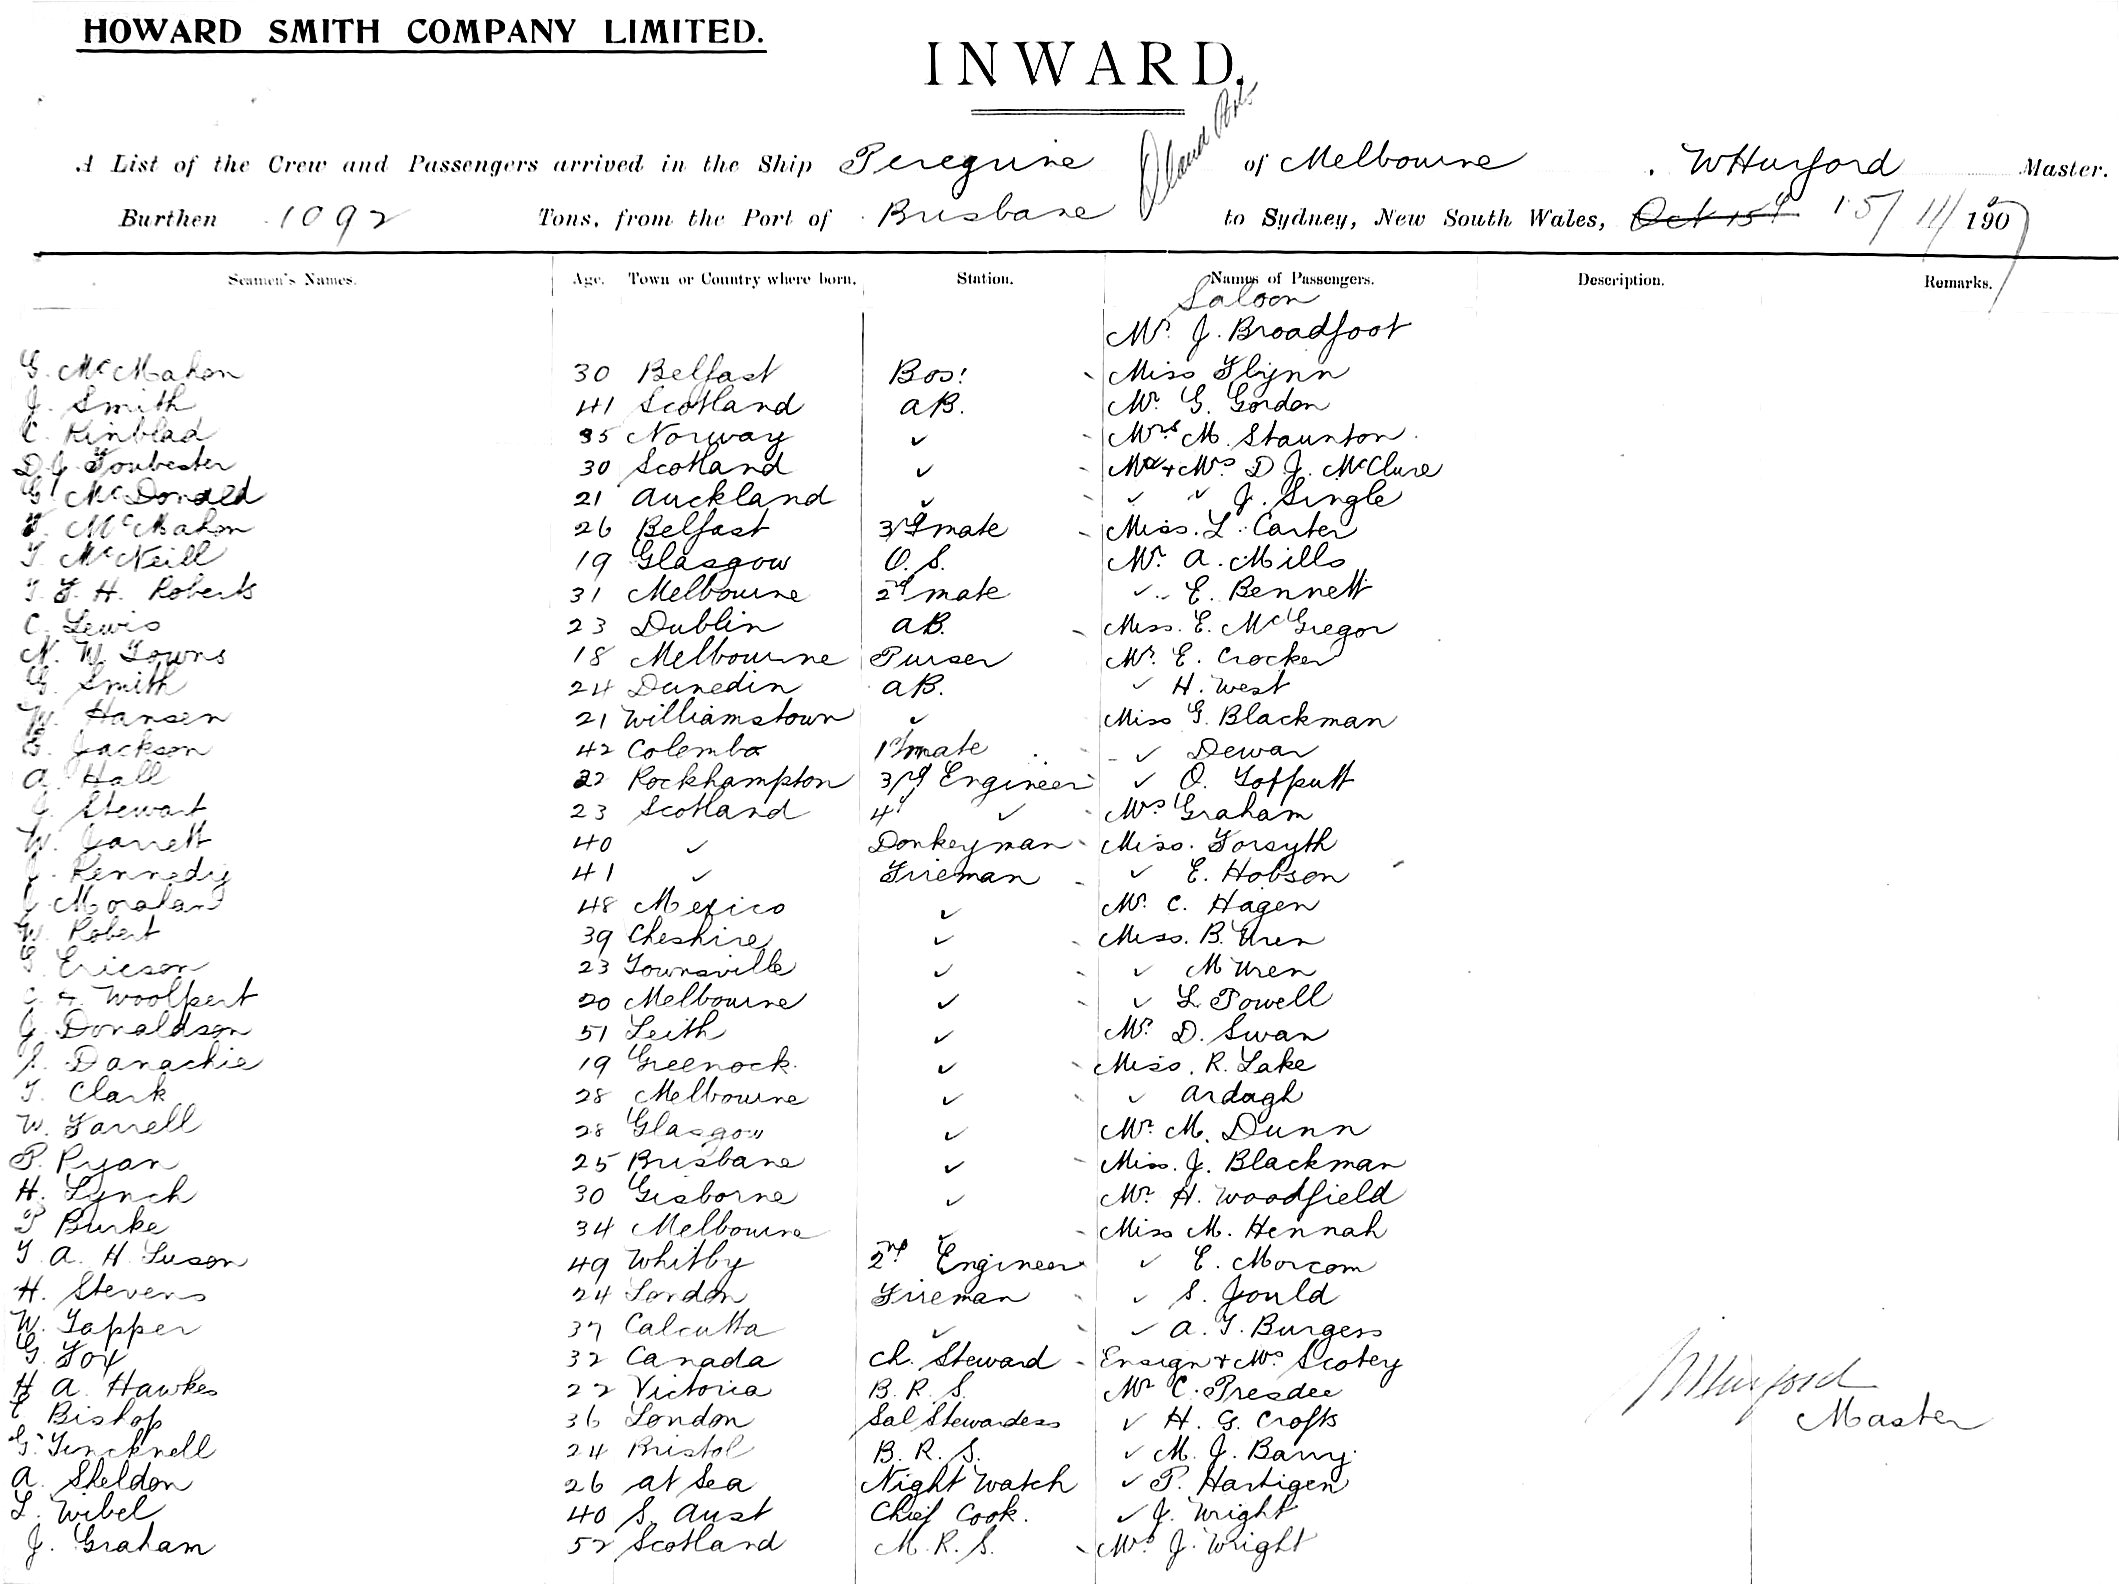 HOWARD SMITH COMPANY LIMITED.
INWARD.
A List of the Crew and Passengers arrived in the Ship Peregrine of Melbourne, WHurford Master.
Burthen 1092 Tons, from the Port of Brisbane to Sydney, New South Wales, Oct 15th 15/11/1907
Seamen's Names. Age. Town or Country where born. Station. Names of Passengers. Description. Remarks.
Saloon
Mr. J. Broadfoot
G. McMahon 30 Belfast Bos! Miss Flynn
J. Smith 41 Scotland AB. Mr. G. Gordon
C. Kinblad 35 Norway ✓ Mrs M. Staunton
D J. Foubester 30 Scotland ✓ Mr + Mrs D J. McClure
G. McDonald 21 Auckland ✓ ✓ ✓ J. Single
F. McMahon 26 Belfast 3rd mate Miss. L. Carter
T. McNeill 19 Glasgow O. S. Mr. A. Mills
T. F. H. Roberts 31 Melbourne 2nd mate ✓ E. Bennett
C. Lewis 23 Dublin AB. Miss. E. McGregor
N. W. Towns 18 Melbourne Purser Mr. E. Crocker
G. Smith 24 Dunedin AB. ✓ H. West
W. Hansen 21 Williamstown ✓ Miss G. Blackman
B. Jackson 42 Colombo 1st mate ✓ Dewar
A. Hall 22 Rockhampton 3rd Engineer ✓ O. Toffutt
J. Stewart 23 Scotland 4th ✓ Mrs Graham
W. Jarrett 40 ✓ Donkeyman Miss. Forsyth
J. Kennedy 41 ✓ Fireman ✓ E. Hobson
J Moralan 48 Mexico ✓ Mr. C. Hagen
W. Robert 39 Cheshire ✓ Miss. B. Uren
Ericson 23 Townsville ✓ ✓ M Uren
Woolpert 20 Melbourne ✓ ✓ L. Powell
J. Donaldson 51 Leith ✓ Mr. D. Swan
Danachie 19 Greenock ✓ Miss. R. Lake
T. Clark 28 Melbourne ✓ ✓ Ardagh
W. Farrell 28 Glasgow ✓ Mr. M. Dunn
P. Ryan 25 Brisbane ✓ Miss. J. Blackman
H. Lynch 30 Gisborne ✓ Mr. H. Woodfield
P Burke 34 Melbourne ✓ Miss M. Hennah
T. A. H. Luson 49 Whitby 2nd Engineer ✓ E. Morcom
H. Stevens 24 London Fireman ✓ S. Gould
W. Tapper 37 Calcutta ✓ ✓ A. T. Burgess
G. Fox 32 Canada Ch. Steward Ensign + Mrs Scotey
H A. Hawkes 22 Victoria B. R. S. Mr C. Presdee
E Bishop 36 London Sal Stewardess ✓ H. G. Crofts
G. Tincknell 24 Bristol B. R. S. ✓ M. J. Barry
A. Sheldon 26 at Sea Night Watch ✓ P. Hartigen
L. Wibel 40 S. Aust Chief Cook. ✓ J. Wright
J. Graham 52 Scotland M. R. S. Mrs J. Wright
WHurford
Master